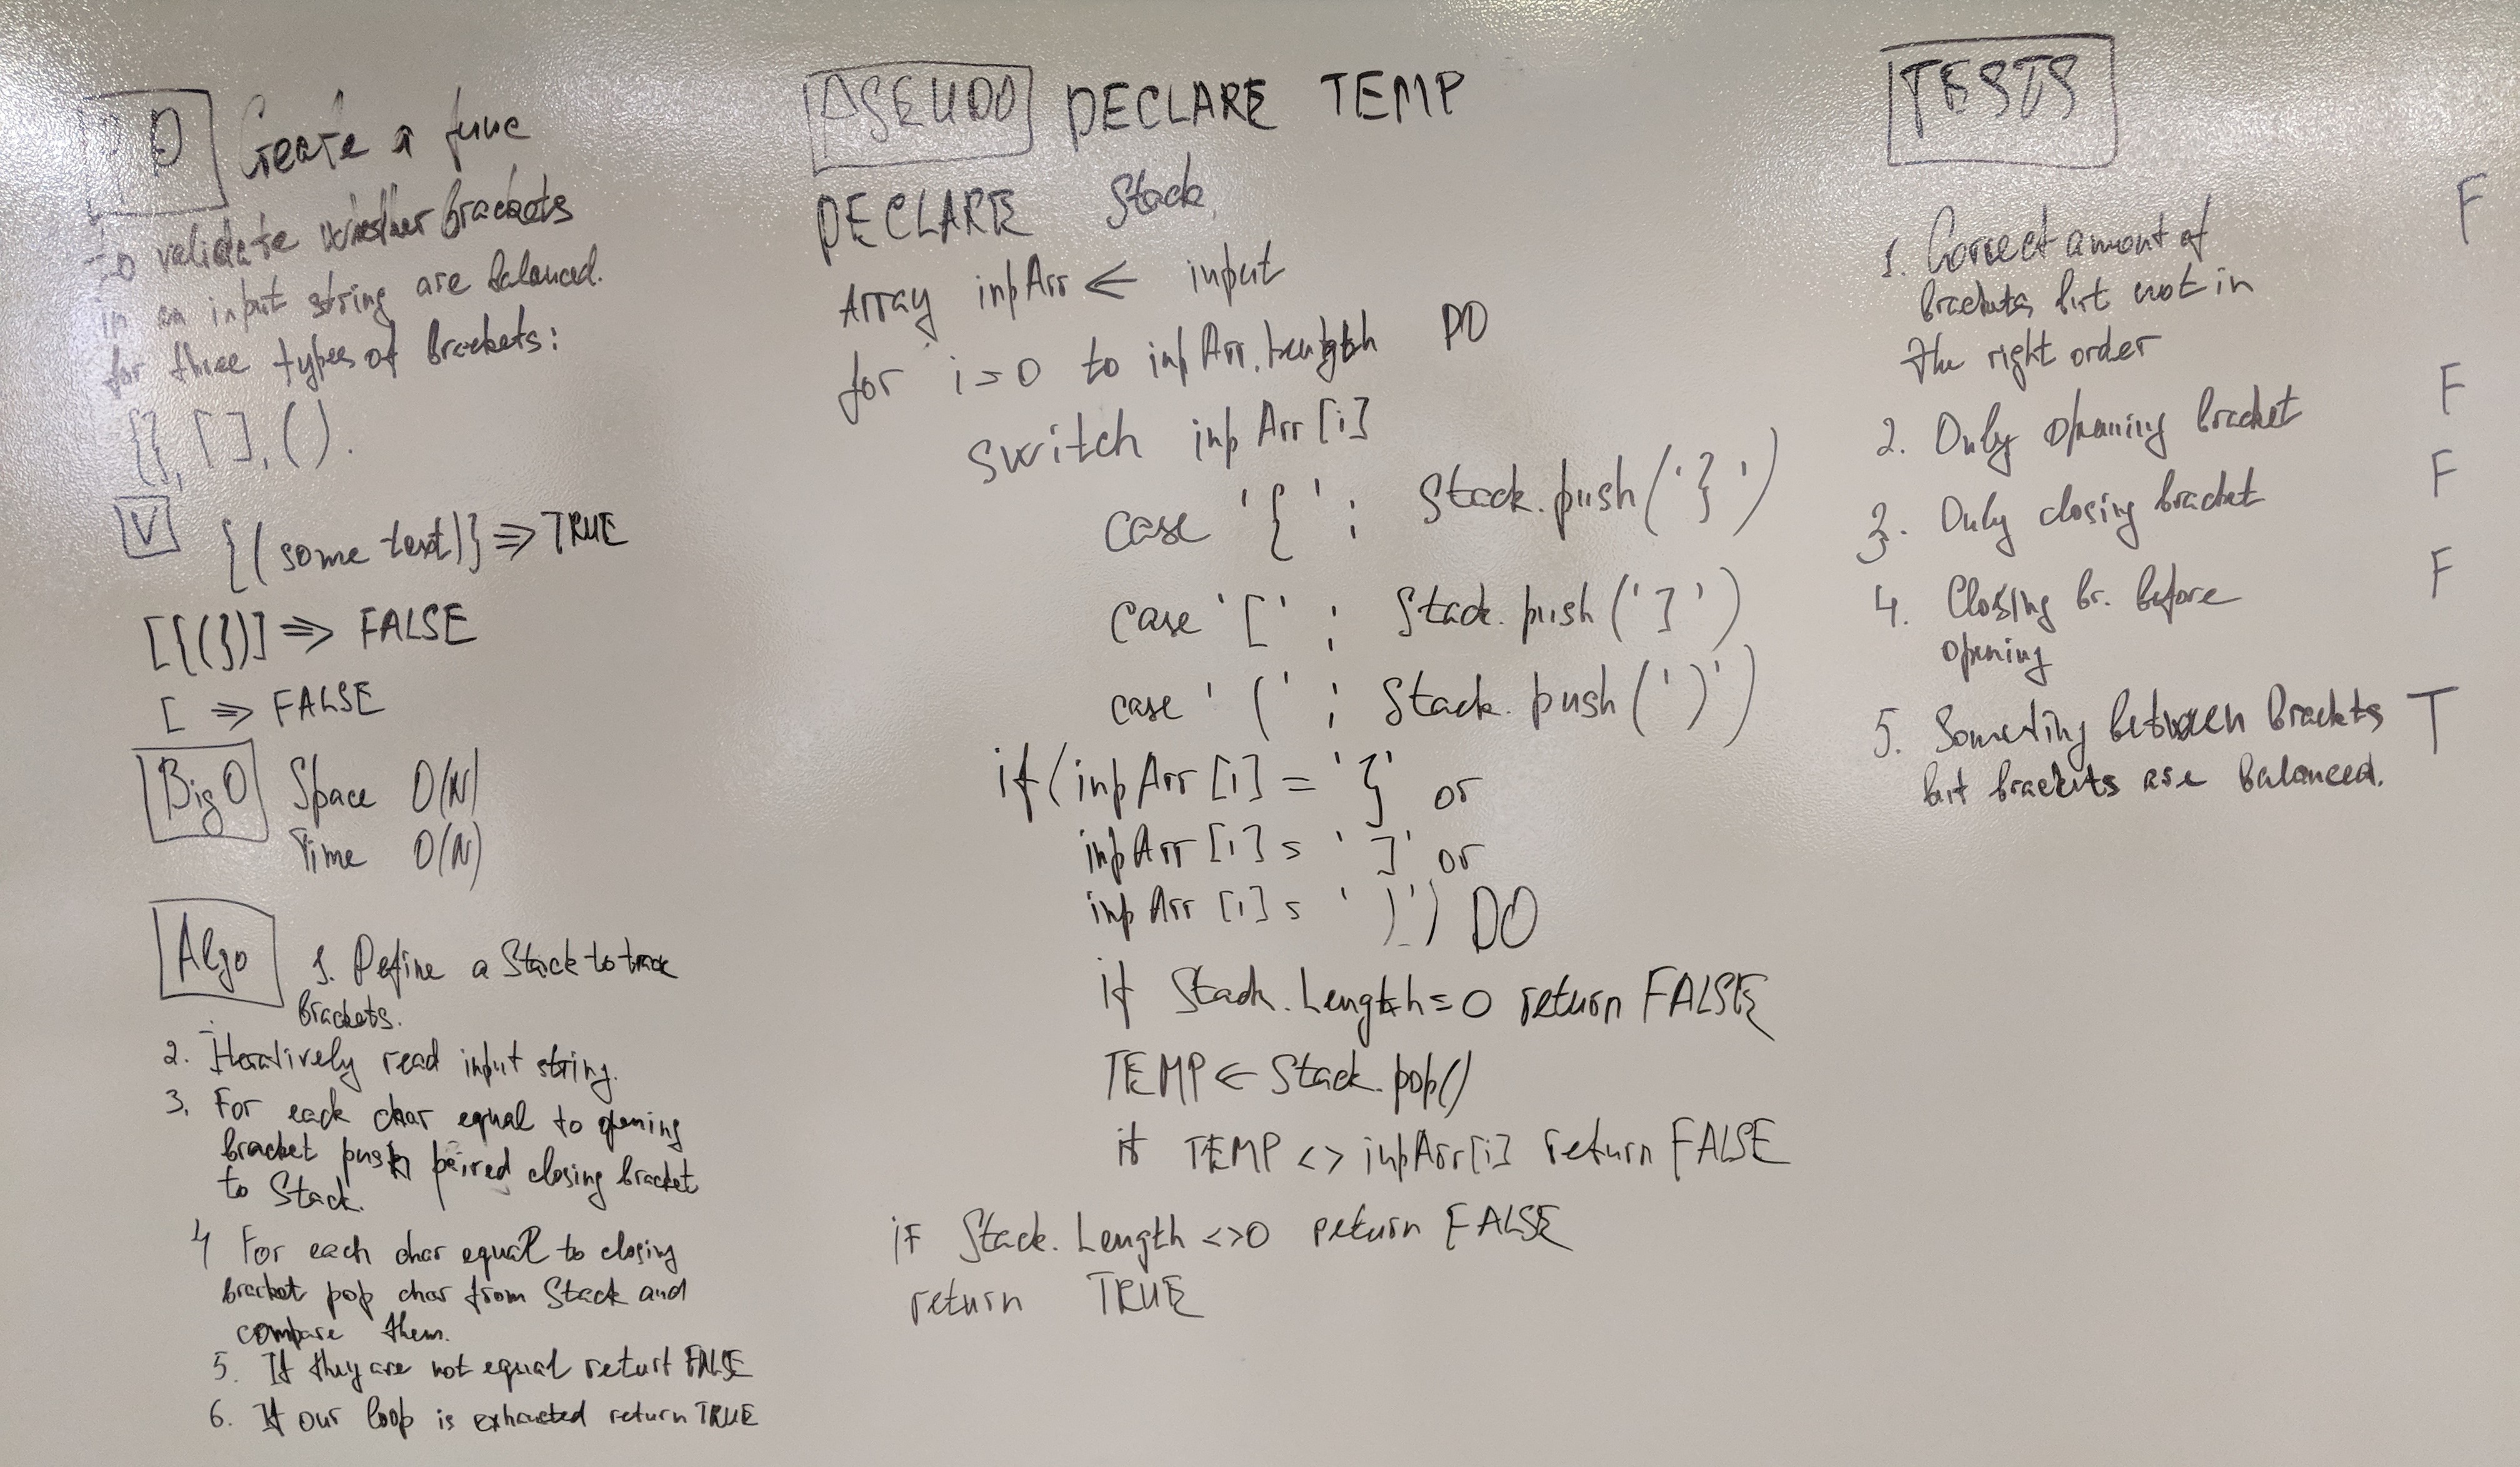 PD Create a func
to validate whether brackets
in an input string are balanced.
for three types of brackets:
{}, [ ], ( ).
V {(some text)} => TRUE
[{(})] => FALSE
[ => FALSE
Big O Space O(N)
Time O(N)
Algo 1. Define a Stack to track
brackets.
2. Iteratively read input string.
3. For each char equal to opening
bracket push paired closing bracket
to Stack.
4 For each char equal to closing
bracket pop char from Stack and
compare them.
5. If they are not equal return FALSE
6. If our loop is exhausted return TRUE
PSEUDO DECLARE TEMP
DECLARE Stack
Array inpArr <= input
for i=0 to inpArr.Length DO
switch inpArr[i]
case '{' ; Stack.push('}')
case '[' ; Stack.push(']')
case '(' ; Stack.push(')')
if (inpArr[i] = '}' or
inpArr[i] = ']' or
inpArr[i] = ')') DO
if Stack.Length = 0 return FALSE
TEMP <= Stack.pop()
if TEMP <> inpArr[i] return FALSE
if Stack.Length <> 0 return FALSE
return TRUE
TESTS
1. Correct amount of F
brackets but not in
the right order
2. Only opening bracket F
3. Only closing bracket F
4. Closing br. before F
opening
5. Something between brackets T
but brackets are balanced.